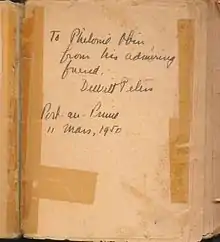 To Philomé Obin
from his admiring
friend.
DeWitt Peters
Port-au-Prince
11 Mars, 1950